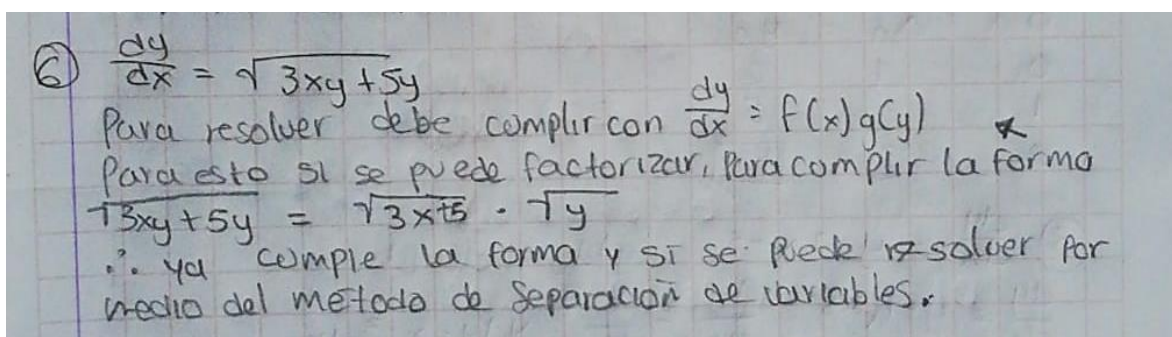 6 dy/dx = √3xy+5y
Para resolver debe complir con dy/dx = f(x)g(y) *
Para esto si se puede factorizar, Para complir la forma
√3xy+5y = √3x+5 · √y
∴ ya cumple la forma y si se puede resolver por
medio del método de Separación de variables.